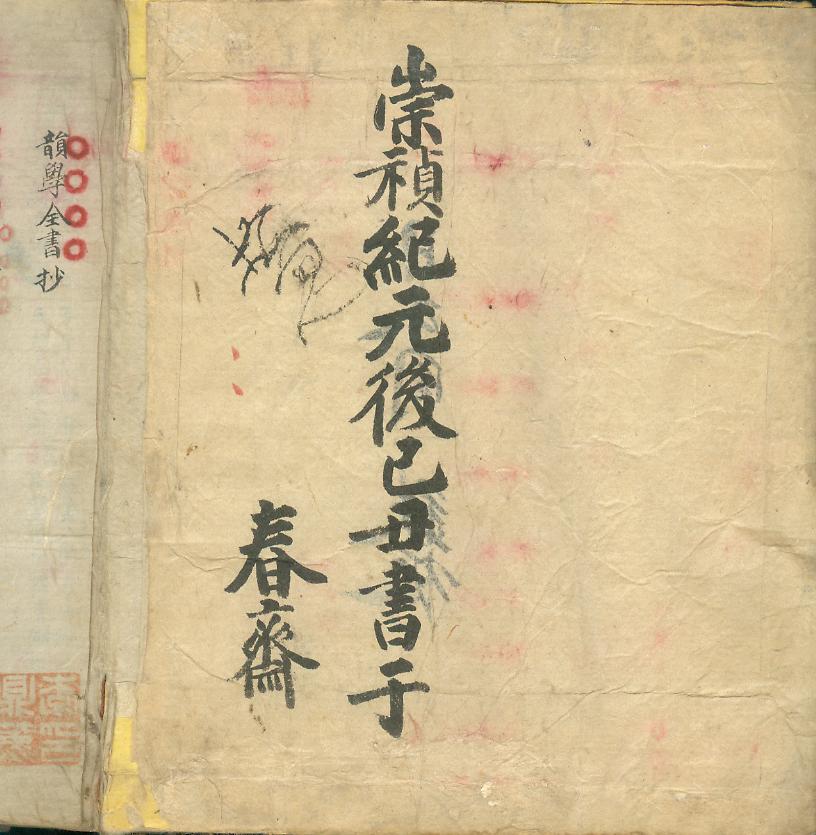 崇禎紀元後己丑書于
春齋
韻學全書抄